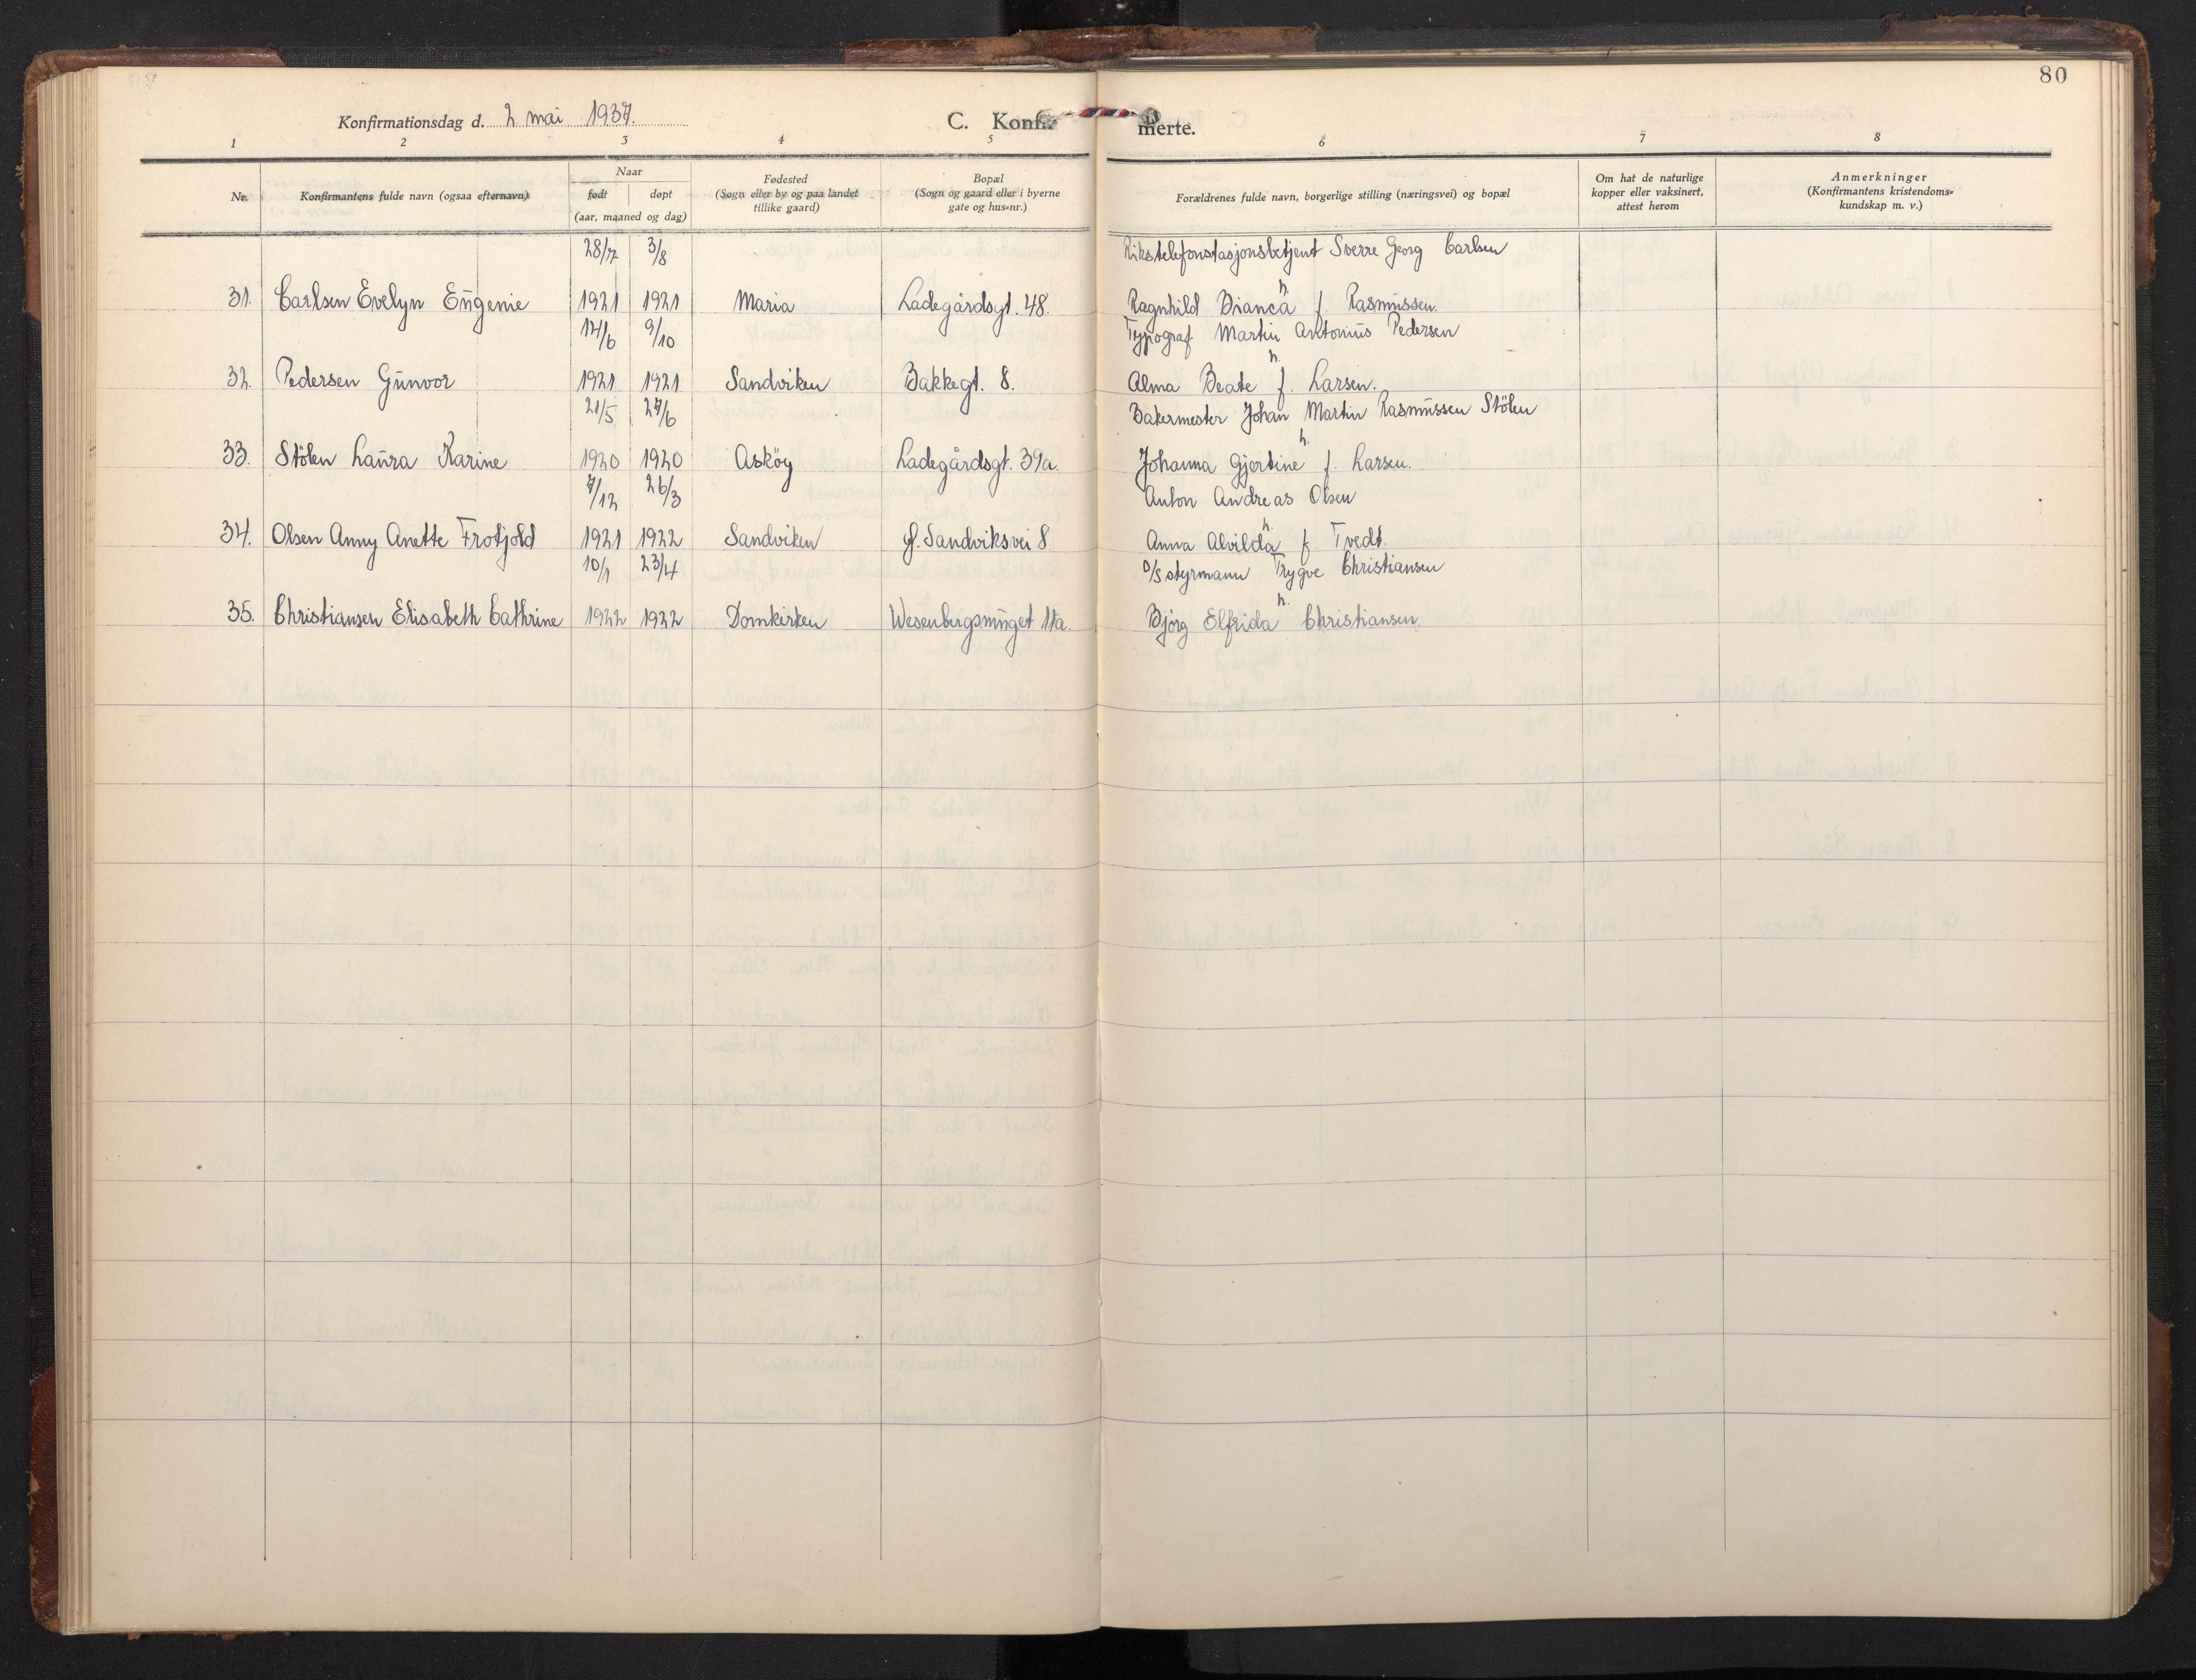 80
Konfirmationsdag d. 2 mai 1937.
C. Konf
merte.
1 2 3 4 5 6 7 8
Nr. Konfirmantens fulde navn (ogsaa efternavn) Naar født døpt (aar, maaned og dag) Fødested (Sogn eller by og paa landet tillike gaard) Bopæl (Sogn og gaard eller i byerne gate og hus-nr.) Forældrenes fulde navn, borgerlige stilling (næringsvei) og bopæl Om hat de naturlige kopper eller vaksinert, attest herom Anmerkninger (Konfirmantens kristendoms-kundskap m. v.)
3/8 Rikstelefonstasjonsbetjent Sverre Georg Carlsen
31. Carlsen Evelyn Eugenie 1921 1921 Maria Ladegårdsgt. 48. Ragnhild Bianca h. f. Rasmussen.
9/10 Typograf Martin Antonius Pedersen
32. Pedersen Gunvor 1921 1921 Sandviken Bakkegt. 8. Alma Beate h. f. Larsen.
21/5 27/6 Bakermester Johan Martin Rasmussen Stölen
33. Stölen Laura Karine 1920 1920 Asköy Ladegårdsgt. 39a. Johanna Gjertine h. f. Larsen.
7/12 26/3 Anton Andreas Olsen
34. Olsen Anny Anette Frotjold 1921 1922 Sandviken Sandviksvei 8. Anna Alvilda h. f. Tvedt.
10/1 23/4 D/S styrmann Trygve Christiansen
35. Christiansen Elisabeth Cathrine 1922 1922 Domkirken Wesenbergsmuget 11a. Bjørg Elfrida h. Christiansen